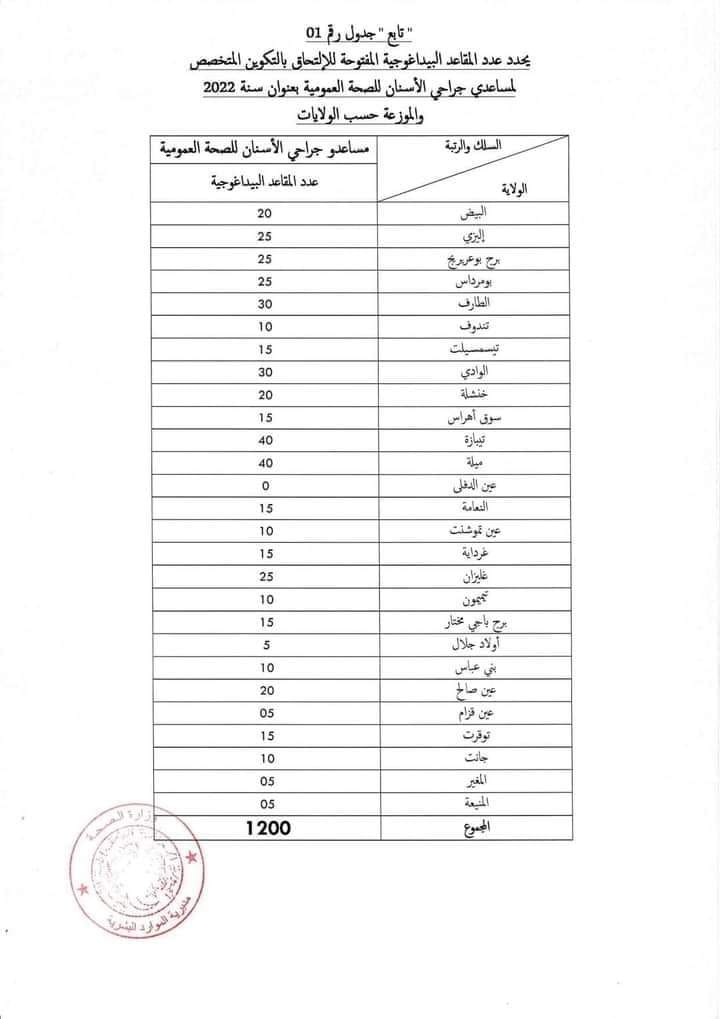 " تابع " جدول رقم 01
يحدد عدد المقاعد البيداغوجية المفتوحة للإلتحاق بالتكوين المتخصص
لمساعدي جراحي الأسنان للصحة العمومية بعنوان سنة 2022
والموزعة حسب الولايات
السلك والرتبة
مساعدو جراحي الأسنان للصحة العمومية
الولاية
عدد المقاعد البيداغوجية
البيض 20
إليزي 25
برج بوعريريج 25
بومرداس 25
الطارف 30
تندوف 10
تيسمسيلت 15
الوادي 30
خنشلة 20
سوق أهراس 15
تيبازة 40
ميلة 40
عين الدفلى 0
النعامة 15
عين تموشنت 10
غرداية 15
غليزان 25
تيميمون 10
برج باجي مختار 15
أولاد جلال 5
بني عباس 10
عين صالح 20
عين قزام 05
توقرت 15
جانت 10
المغير 05
المنيعة 05
المجموع 1200
وزارة الصحة
مديرية الموارد البشرية